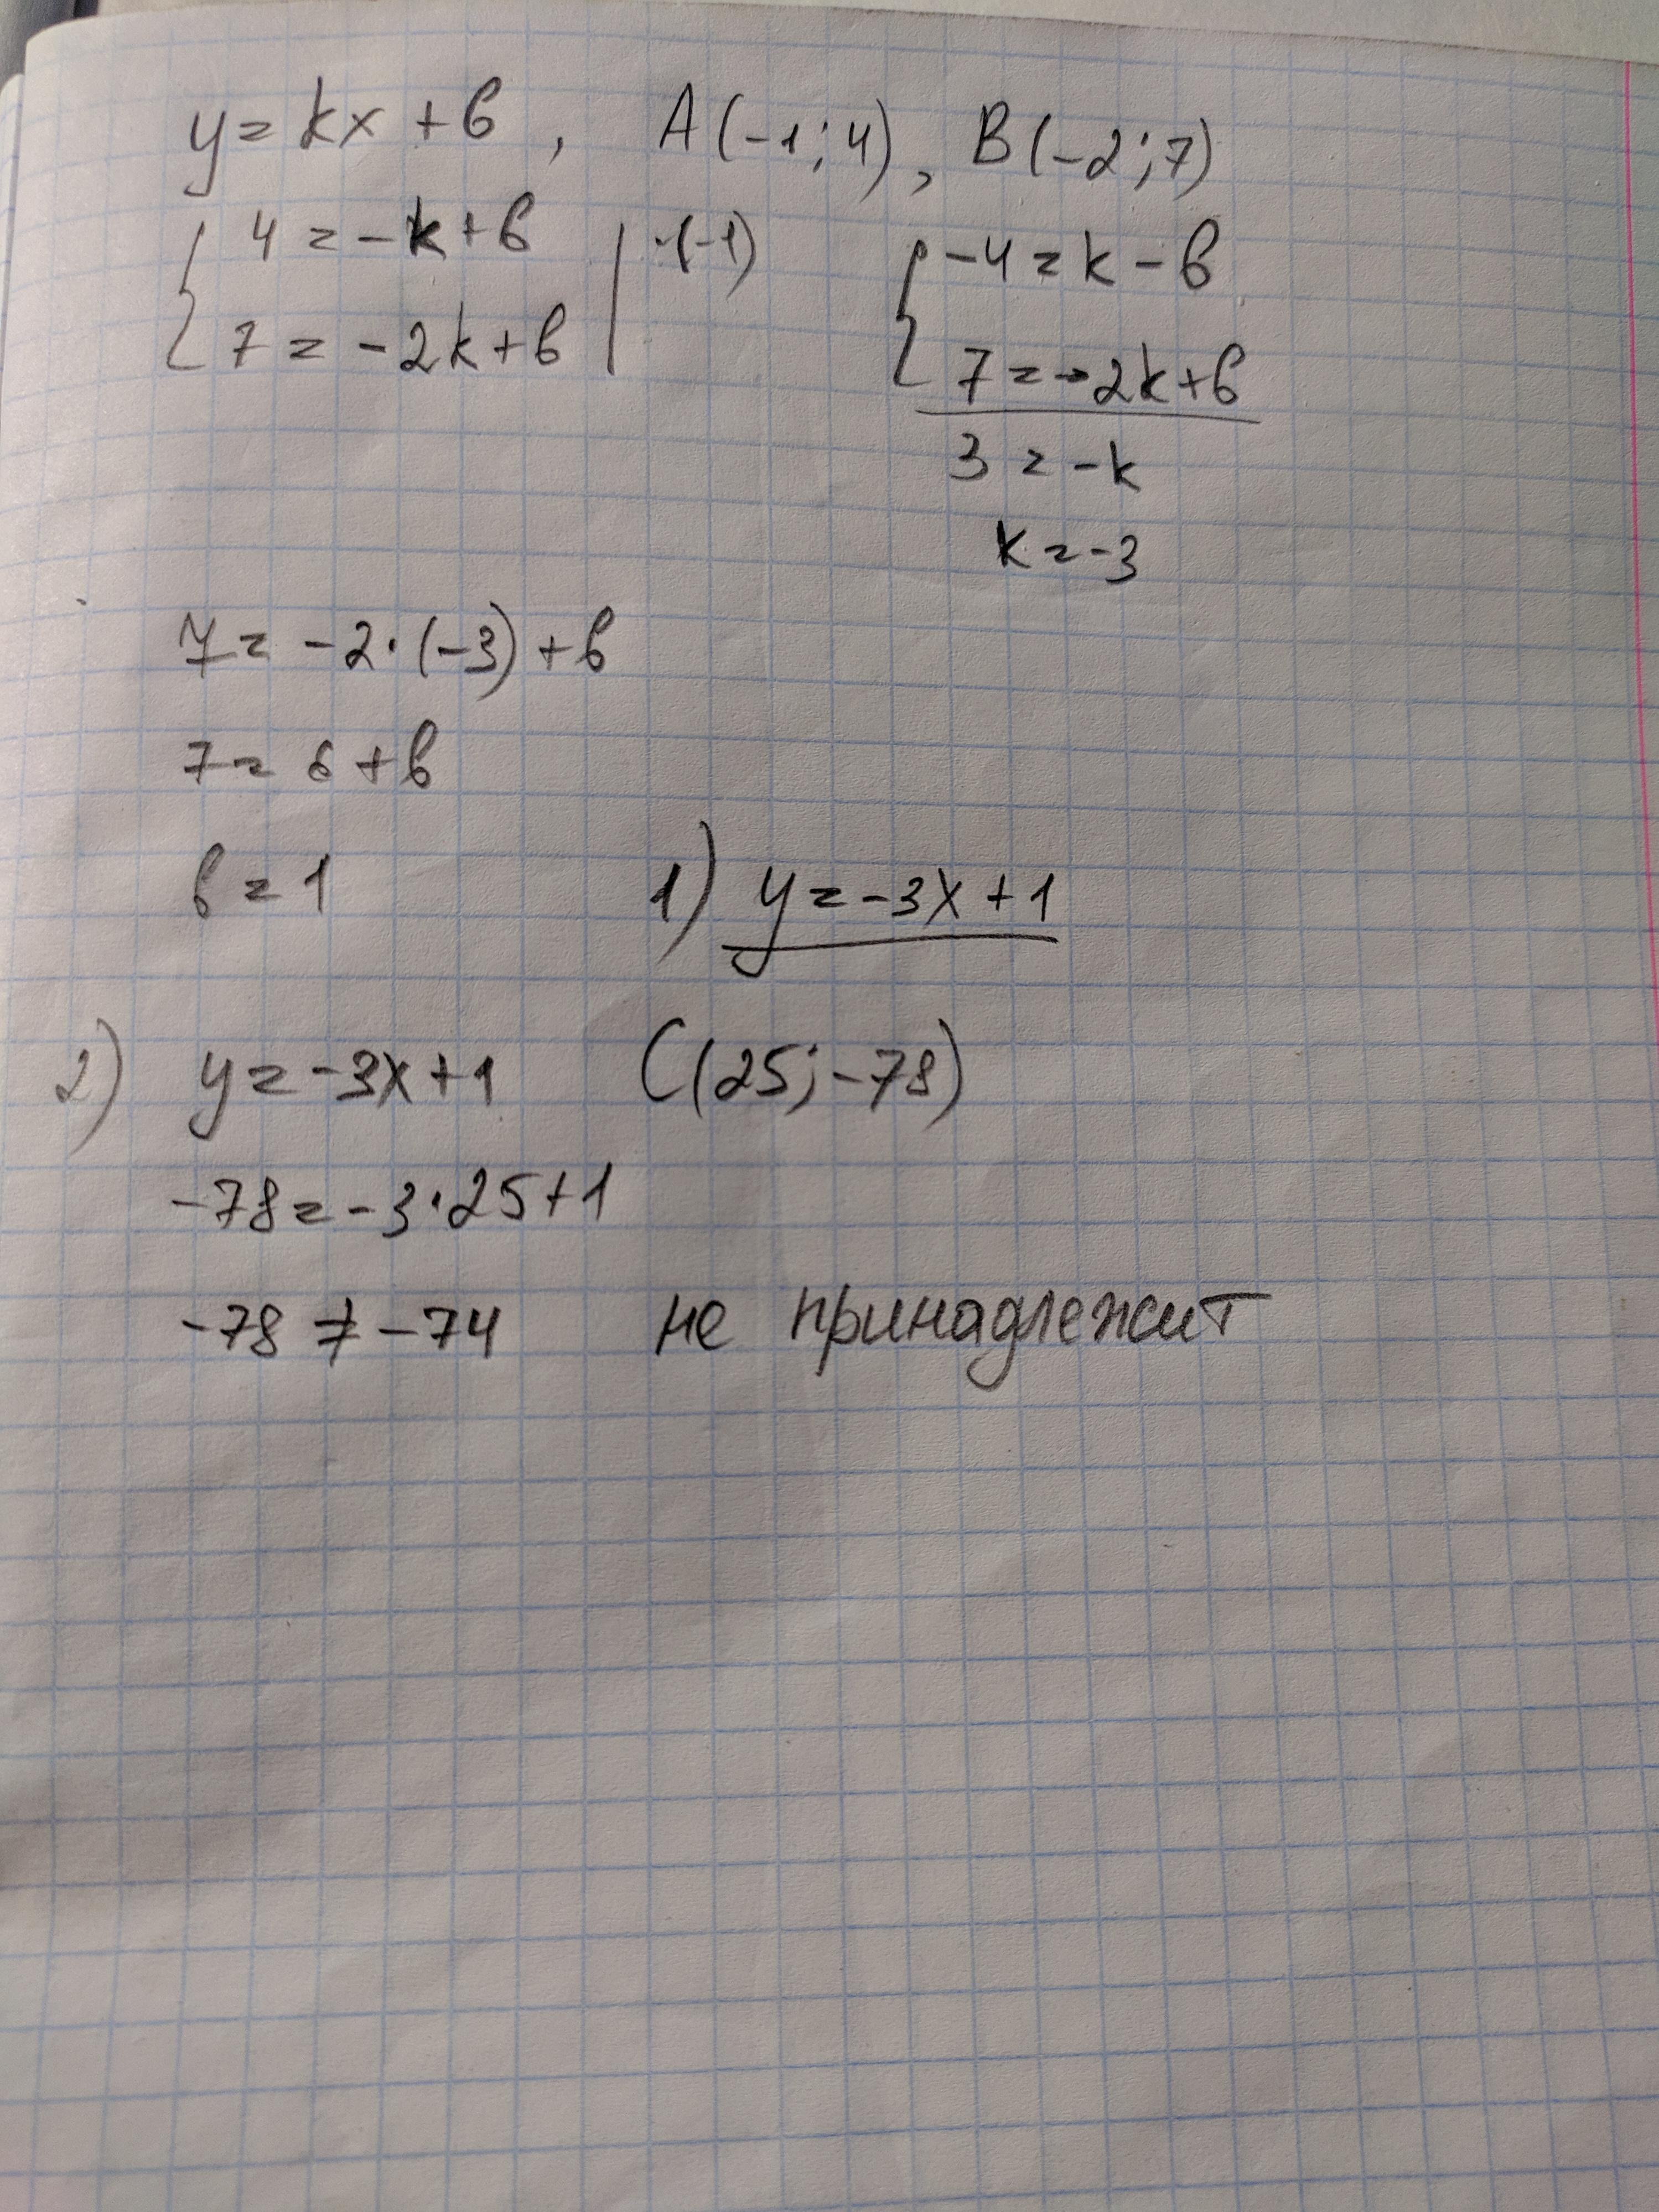 y = kx + b, A(-1; 4), B(-2; 7)
{ 4 = -k + b | ·(-1) { -4 = k - b
7 = -2k + b | 7 = -2k + b
3 = -k
k = -3
7 = -2·(-3) + b
7 = 6 + b
b = 1 1) y = -3x + 1
2) y = -3x + 1 C(25; -78)
-78 = -3·25 + 1
-78 ≠ -74 не принадлежит